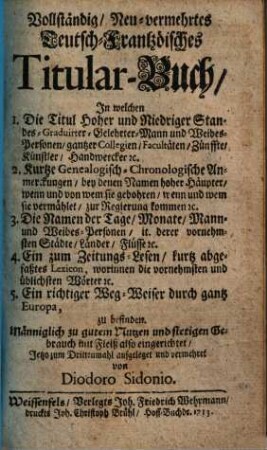 Vollständig/ Neu-vermehrtes
Teutsch-Frantzöisches
Titular-Buch/
In welchen
1. Die Titul Hoher und Niedriger Stan-
des-Graduirter-Gelehrter-Mann und Weibes-
Personen/ gantzer Collegien/ Facultäten/ Zünffte/
Künstler/ Handwercker ꝛc.
2. Kurtze Genealogisch-Chronologische An-
merckungen/ bey denen Namen hoher Häupter/
wenn und von wem sie gebohren/ wenn und wem
sie vermählet/ zur Regierung kommen ꝛc.
3. Die Namen der Tage/ Monate/ Mann-
und Weibes-Personen/ it. derer vornehm-
sten Städte/ Länder/ Flüsse ꝛc.
4. Ein zum Zeitungs-Lesen/ kurtz abge-
faßtes Lexicon, worinnen die vornehmsten und
üblichsten Wörter ꝛc.
5. Ein richtiger Weg-Weiser durch gantz
Europa,
zu befinden.
Männiglich zu gutem Nutzen und stetigen Ge-
brauch mit Fleiß also eingerichtet/
Jetzo zum Drittenmahl aufgeleget und vermehret
von
Diodoro Sidonio.
Weissenfels/ Verlegts Joh. Friedrich Wehrmann/
druckts Joh. Christoph Brühl/ Hoff-Buchdr. 1733.